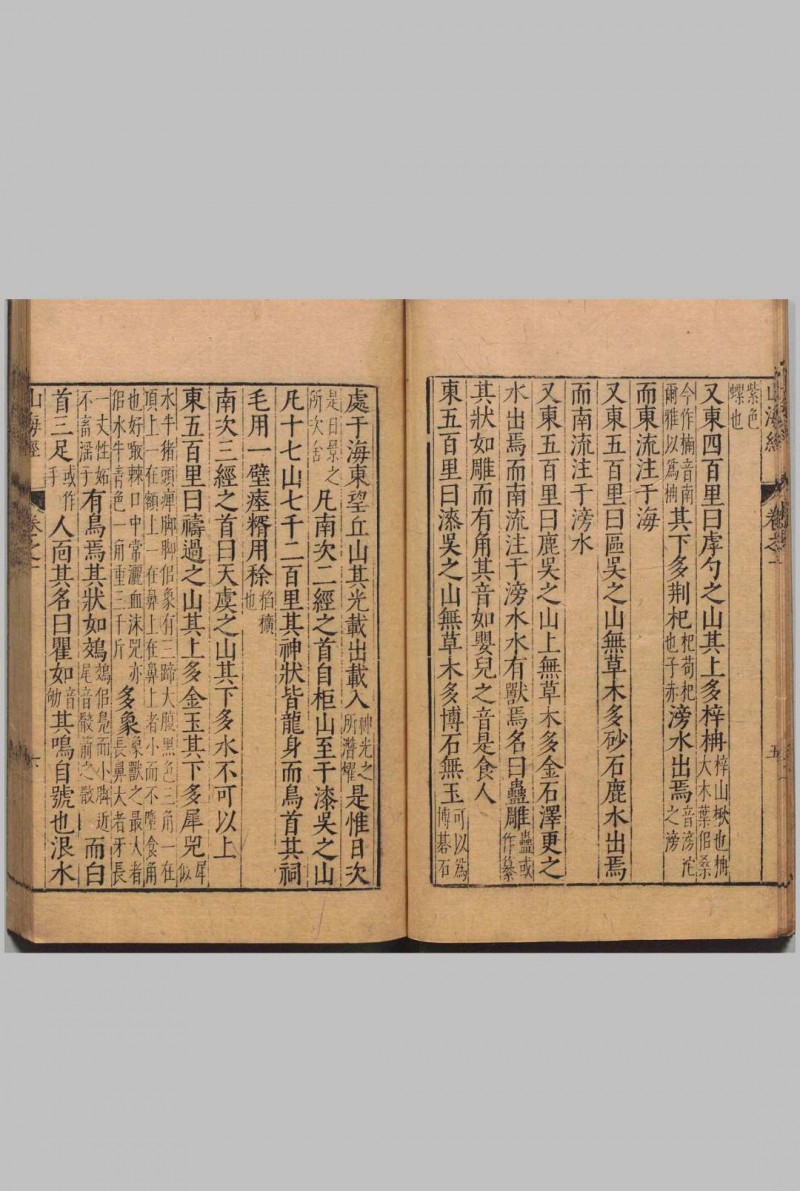 山海經 卷之一 五
紫色螺也
又東四百里曰虖勺之山其上多梓柟梓山楸也柟大木葉佀桑
今作楠音南爾雅以爲柟其下多荆杞杞苟杞也子赤滂水出焉音滂沱之滂
而東流注于海
又東五百里曰區吳之山無草木多砂石鹿水出焉
而南流注于滂水
又東五百里曰鹿吳之山上無草木多金石澤更之
水出焉而南流注于滂水水有獸焉名曰蠱雕蠱或作纂
其狀如雕而有角其音如嬰兒之音是食人
東五百里曰漆吳之山無草木多博石無玉可以爲博碁石
處于海東望丘山其光載出載入神光之所潛燿是惟日次
是日景之所次舍凡南次二經之首自柜山至于漆吳之山
凡十七山七千二百里其神狀皆龍身而鳥首其祠
毛用一璧瘞糈用稌稻穬也
南次三經之首曰天虞之山其下多水不可以上
東五百里曰禱過之山其上多金玉其下多犀兕犀似
水牛豬頭庳脚脚佀象有三蹄大腹黑色三角一在頂上一在額上一在鼻上在鼻上者小而不墮食角
也好噉棘口中常灑血沫兕亦佀水牛青色一角重三千斤多象象獸之最大者長鼻大者牙長
一丈性妬不畜淫子有鳥焉其狀如鵁鵁佀鳧而小脚近尾音骹箭之骹而白
首三足或作手人面其名曰瞿如音劬其鳴自號也泿水
山海經 卷之一 六